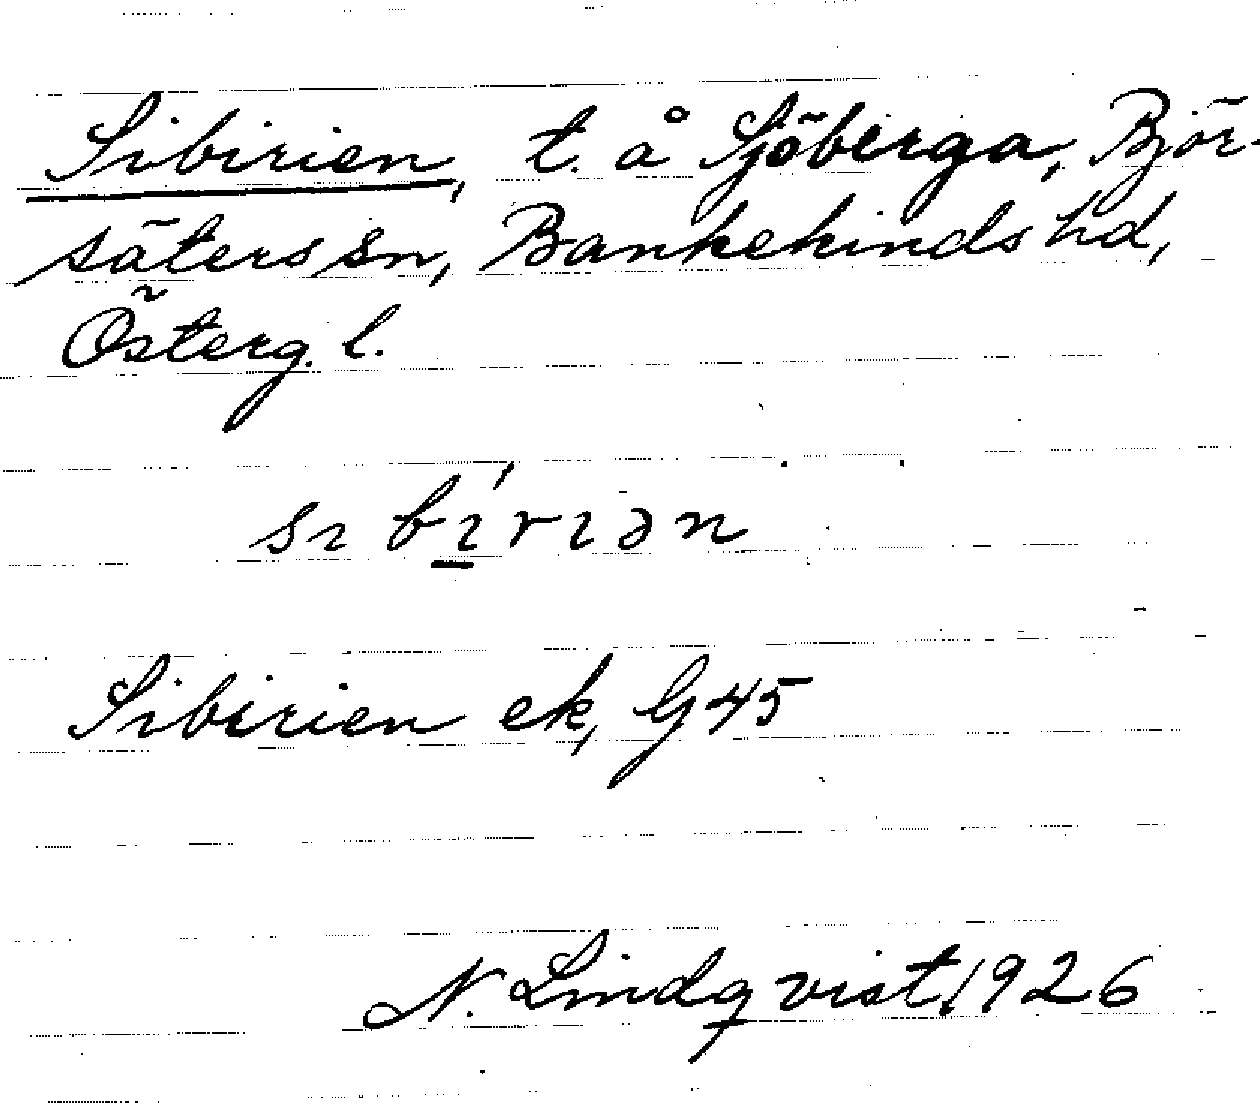 Sibirien, t. å Sjöberga, Björ-
säters sn, Bankekinds hd,
Österg. l.
sı bı́rıən
Sibirien ek, G 45
N. Lindqvist 1926